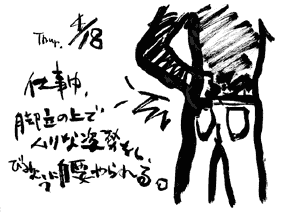 Thur. 4/18
仕事中、
脚立の上で
ムリな姿勢をし、
腰やられる。